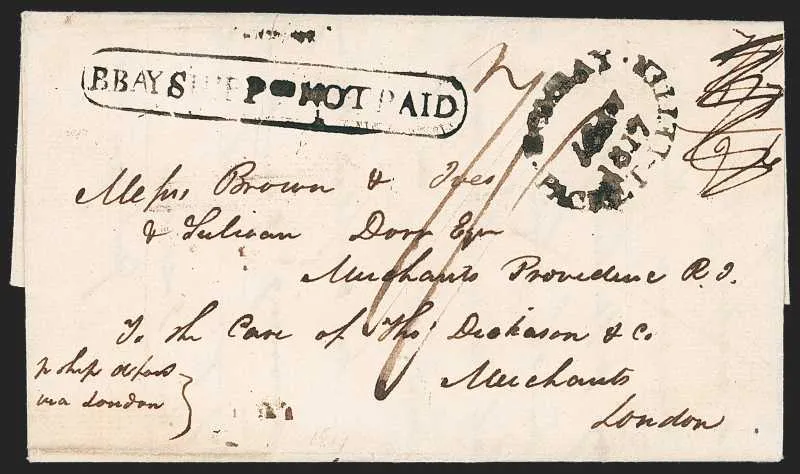 BBAY SHIP NOT PAID
BOMBAY
PACKET LETTER
1817
Messrs Brown & Ives
& Sulivan Dorr Esqr
Merchants Providence R.I.
To the Care of Thos Dickason & Co
Merchants
London
p ship
via London